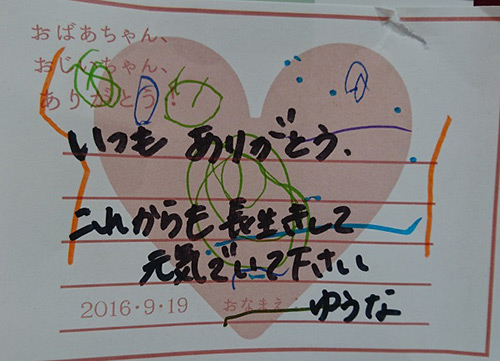 おばあちゃん、
おじいちゃん、
ありがとう！
いつも ありがとう、
これからも長生きして
元気でいて下さい
2016・9・19 おなまえ： ゆうな